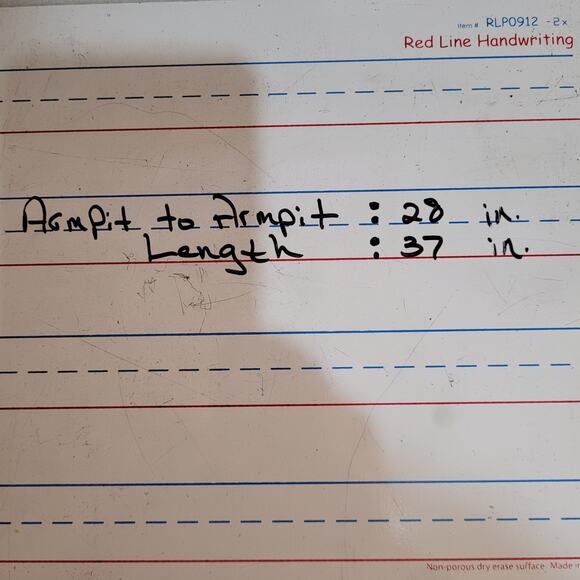 Item # RLP0912 -2x
Red Line Handwriting
Armpit to Armpit : 28 in.
Length : 37 in.
Non-porous dry erase surface. Made in